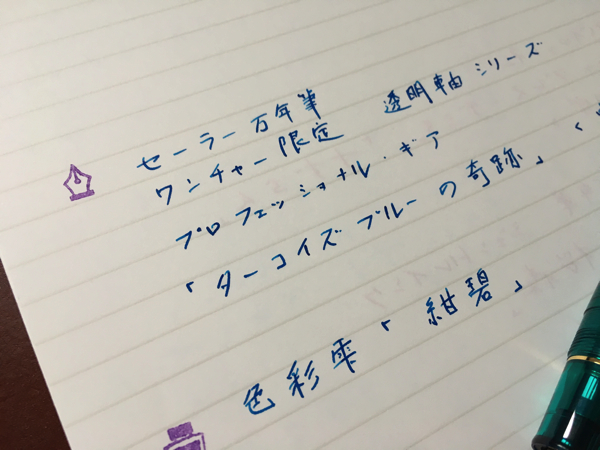 セーラー万年筆 透明軸シリーズ
ワンチャー限定
プロフェッショナル・ギア
「ターコイズブルーの奇跡」
色彩雫「紺碧」